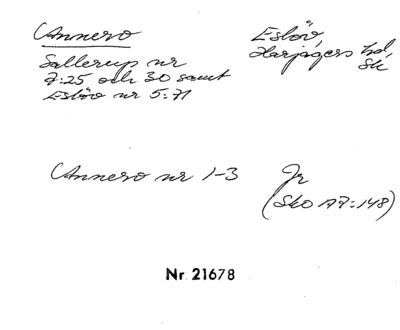 Annero
Sallerup nr
7:25 och 30 samt
Eslöv nr 5:71
Eslöv,
Harjagers hd,
Sk
Annero nr 1-3
Jr
(Sko A7:148)
Nr 21678